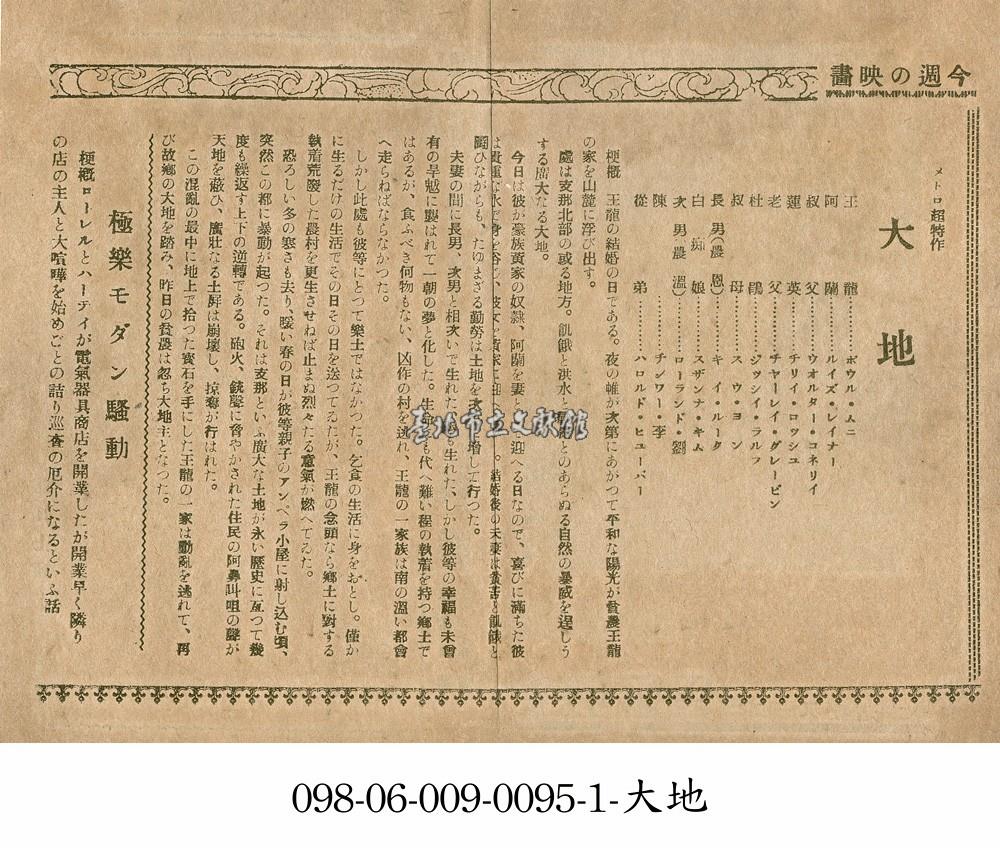 今週の映畫
メトロ超特作
大地
王龍………ポウル・ムニ
阿蘭………ルイズ・レイナー
叔父………ウオルター・コネリイ
蓮英………チリイ・ロッシュ
老父………チャーレイ・グレービン
杜鵑………ジッシイ・ラルフ
叔母………スウ・ヨン
長男(農恩)………キイ・ルータ
白痴娘………スザンナ・キム
次男農溫)………ローランド・劉
陳………チンワー・李
從弟………ハロルド・ヒューバー
梗概 王龍の結婚の日である。夜の帷が次第にあがつて平和な陽光が貧農王龍
の家を山麓に浮び出す。
處は支那北部の或る地方。飢餓と洪水と とのあらぬる自然の暴威を逞しう
する廣大なる大地。
今日は彼が豪族黃家の奴隷、阿蘭を妻と 迎へる日なので、喜びに滿ちた彼
は貴重な水で身を浴じ、彼女を黃家に迎へ 。結婚後の夫妻は貧苦と飢餓と
鬪ひながらも、たゆまざる勤勞は土地を次 增して行つた。
夫妻の間に長男、次男と相次いで生れた も生れた、しかし彼等の幸福も未曾
有の旱魃に襲はれて一朝の夢と化した。生命 も代へ難い程の執着を持つ鄉土で
はあるが、食ふべき何物もない、凶作の村を逃れ、王龍の一家族は南の溫い都會
へ走らねばならなかつた。
しかし此處も彼等にとつて樂土ではなかつた。乞食の生活に身をおとし。僅か
に生るだけの生活でその日その日を送つてゐるたが、王龍の念頭なら鄉土に對する
執着荒廢した農村を更生させねば止まぬ烈々たる意氣が燃へてゐた。
恐ろしい多の寒さも去り、暖い春の日が彼等親子のアンペラ小屋に射し込む頃、
突然この都に暴動が起つた。それは支那といふ廣大な土地が永い歷史に亙つて幾
度も繰返す上下の逆轉である。砲火、銃聲に脅やかされた住民の阿鼻叫咀の聲が
天地を蔽ひ、廣壯なる土屛は崩壞し、掠奪が行はれた。
この混亂の最中に地上で拾つた寳石を手にした王龍の一家は動亂を逃れて、再
び故鄉の大地を踏み、昨日の貧農は忽ち大地主となつた。
極樂モダン騷動
梗概ローレルとハーデイが電氣器具商店を開業したが開業早く隣り
の店の主人と大喧嘩を始めごとの詰り巡査の厄介になるといふ話
臺北市立文獻館
098-06-009-0095-1-大地